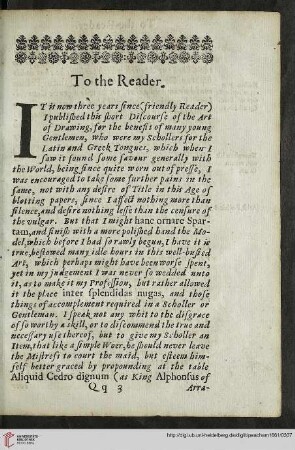 To the Reader.
IT is now three years since (friendly Reader)
I published this short Discourse of the Art
of Drawing, for the benefit of many young
Gentlemen, who were my Schollers for the
Latin and Greek Tongues, which when I
saw it found some favour generally with
the World, being since quite worn out of presse, I
was encouraged to take some further pains in the
same, not with any desire of Title in this Age of
blotting papers, since I affect nothing more than
silence, and desire nothing lesse than the censure of
the vulgar. But that I might hanc ornare Spar-
tam, and finish with a more polished hand the Mo-
del, which before I had so rawly begun, I have it is
true, bestowed many idle hours in this well-busied
Art, which perhaps might have been worse spent,
yet in my judgement I was never so wedded unto
it, as to make it my Profession, but rather allowed
it the place inter splendidas nugas, and those
things of accomplement required in a Scholler or
Gentleman. I speak not any whit to the disgrace
of so worthy a skill, or to discommend the true and
necessary use thereof, but to give my Scholler an
Item, that like a simple Woer, he should never leave
the Mistress to court the maid, but esteem him-
self better graced by propounding at the table
Aliquid Cedro dignum (as King Alphonsus of
Qq 3
Arra-
UNIVERSITÄTS-
BIBLIOTHEK
HEIDELBERG
http://digi.ub.uni-heidelberg.de/diglit/peacham1661/0307